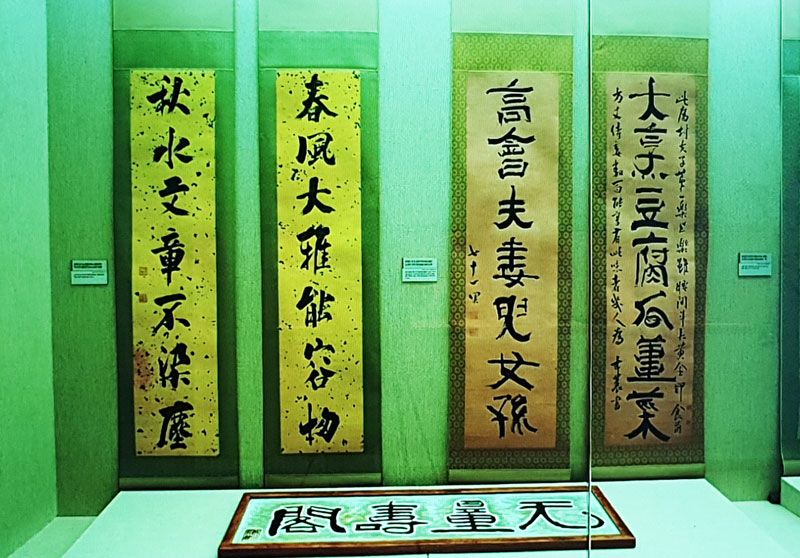 大烹豆腐瓜薑菜
此為村夫子第一樂上樂雖腰間斗大黃金印食前
方丈侍妾數百能享有此味者幾人為杏農書
高會夫妻兒女孫
七十一果
春風大雅能容物
秋水文章不染塵
无量壽閣